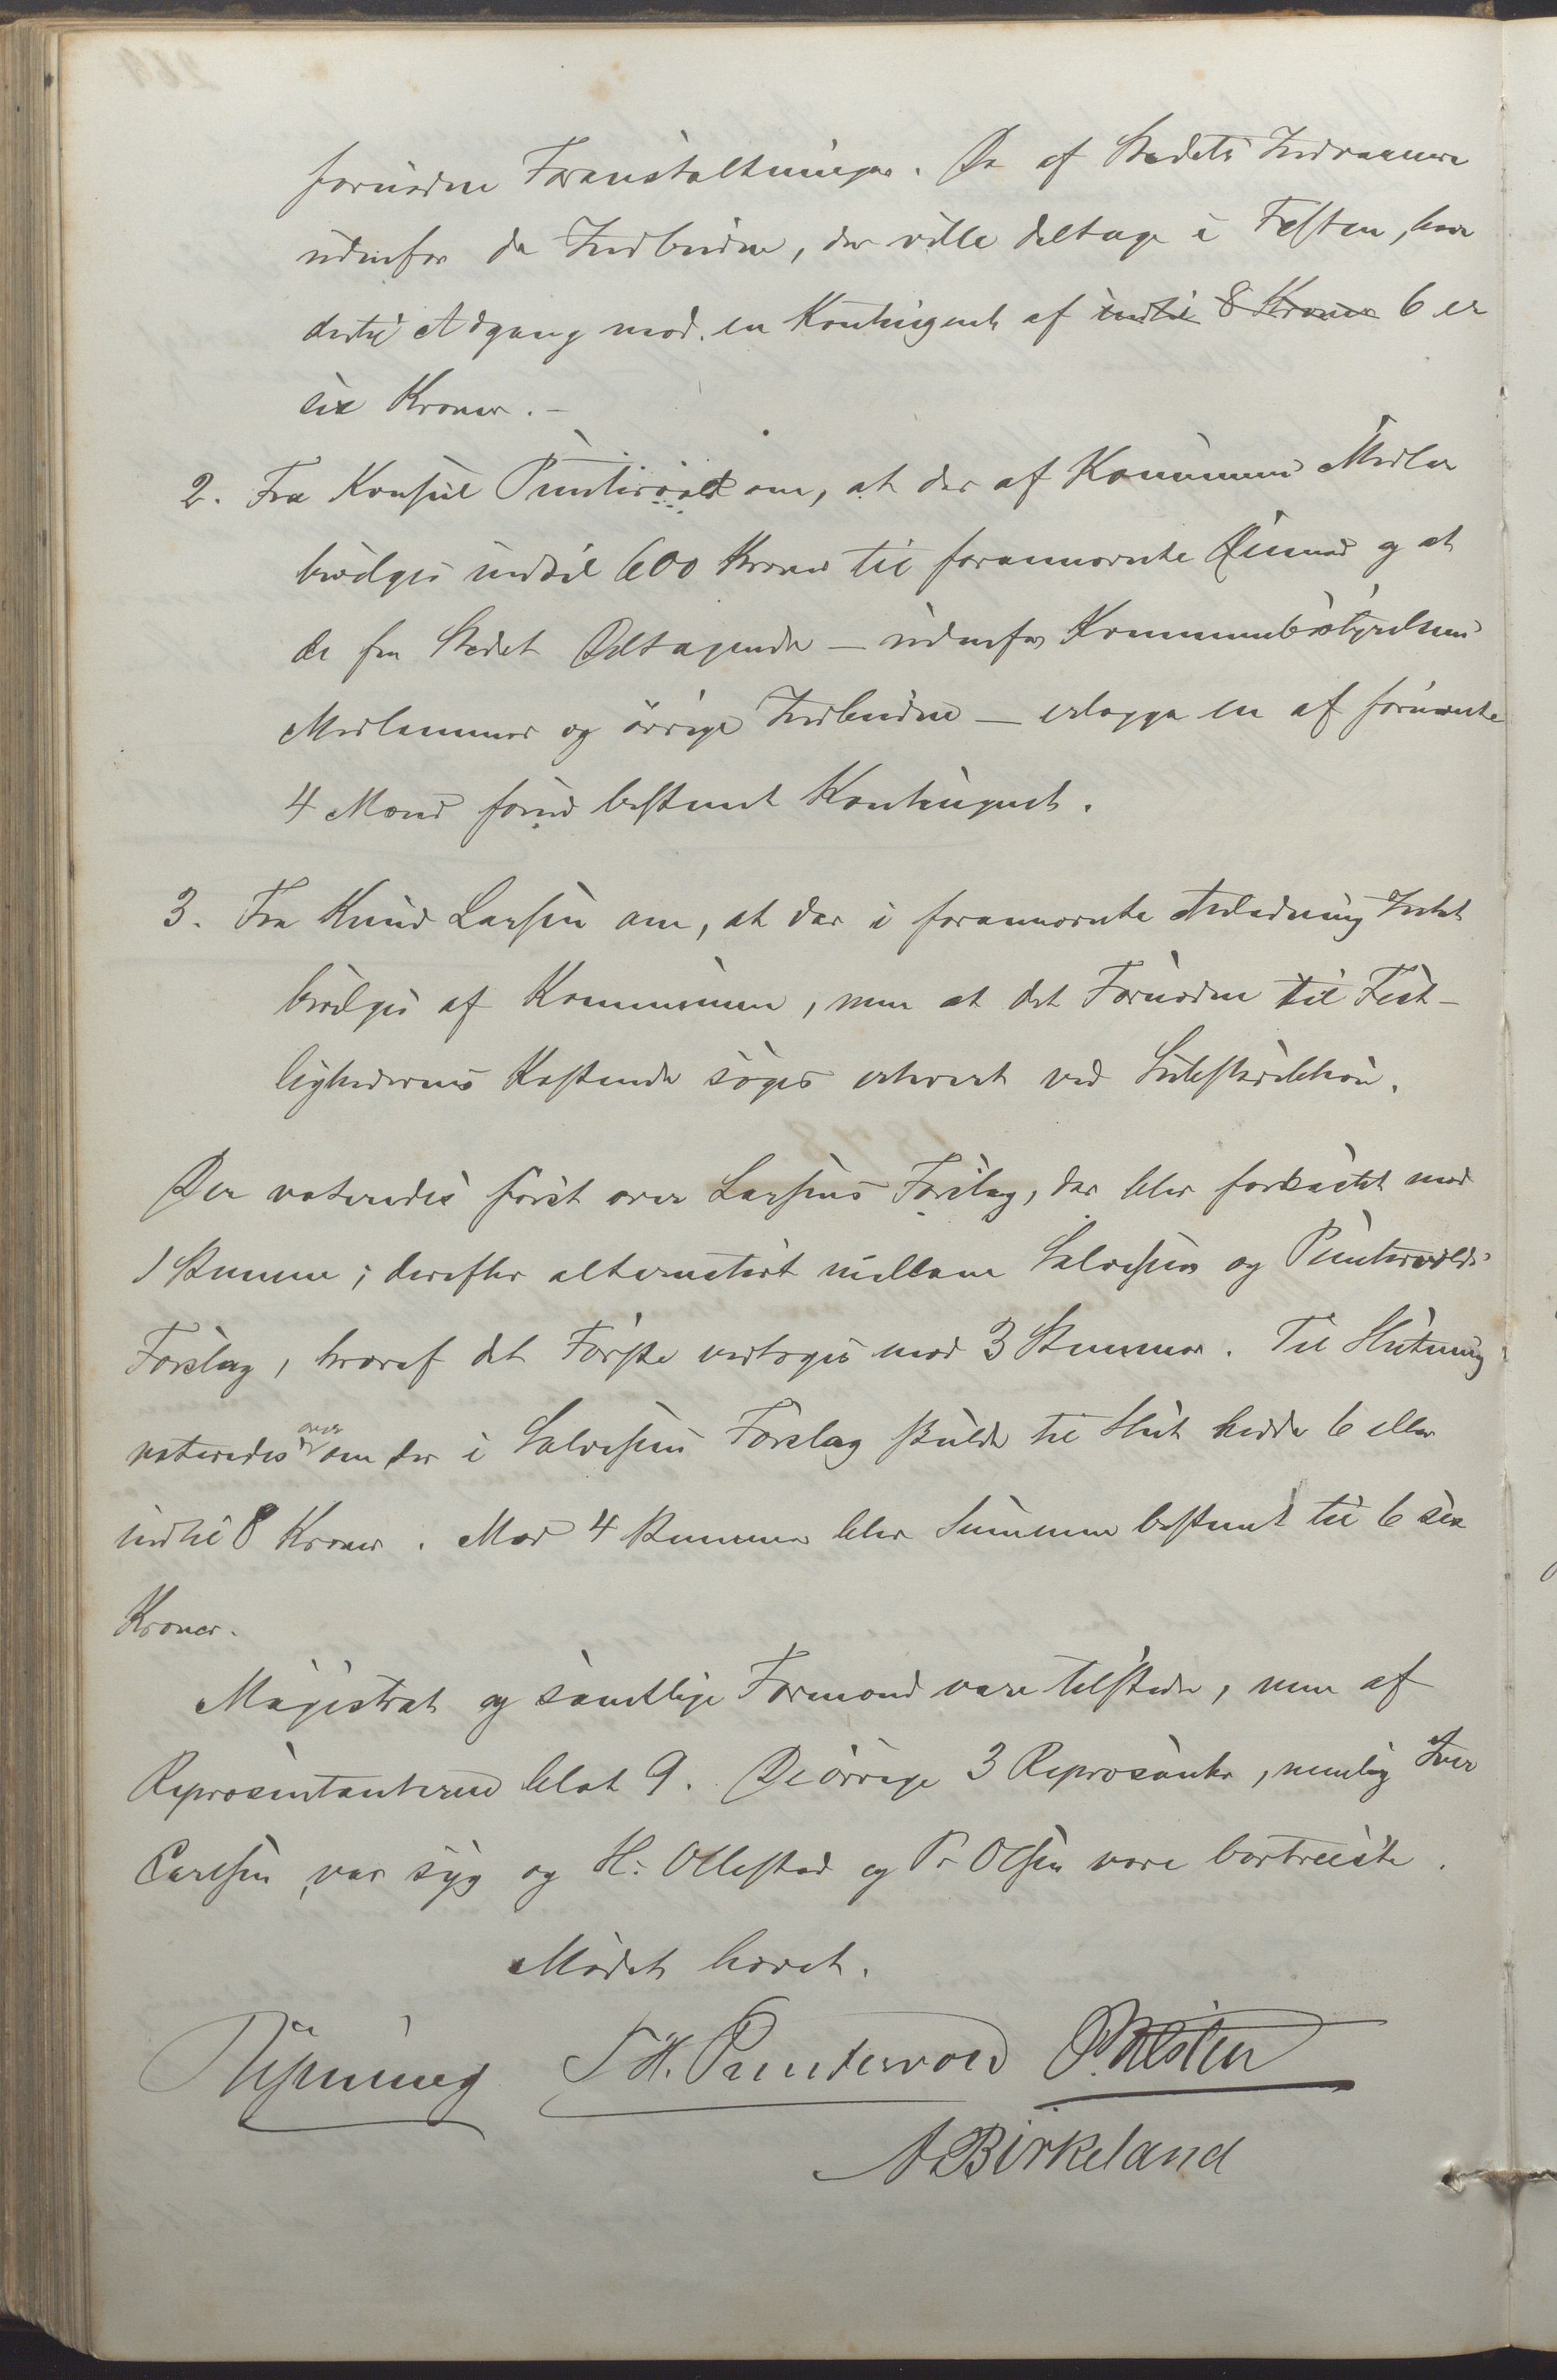 fornødne Foranstaltninger. De af Stedets Indvaanere
udenfor de Indbudne, der ville deltage i Festen, have
dertil Adgang mod en Kontingent af indtil 8 Kroner 6 er
sex Kroner.-
2. Fra Konsul Puntervold om, at der af Kommunens Midler
bevilges indtil 600 Kroner til forannævnte Øiemed og at
de fra Stedet Deltagende - udenfor Kommunebestyrelsens
Medlemmer og øvrige Indbudne - erlægge en af fornævnte
4 Mænd forud bestemt Kontingent.
3. Fra Knud Larsen om, at der i forannævnte Anledning Intet
bevilges af Kommunen, men at det Fornødne til Fest-
lighedernes Kostende søges erhvervet ved Subskription.
Der voteredes først over Larsens Forslag, der blev forkastet mod
1 Stemme; derefter alternativt mellem Salvesens og Puntervolds
Forslag, hvoraf det Første vedtoges mod 3 Stemmer. Til Slutning
voteredes over om der i Salvesens Forslag skulde til Slut hedde 6 eller
indtil 8 Kroner. Mod 4 Stemmer blev Summen bestemt til 6 sex
Kroner.
Magistrat og samtlige Formænd vare tilstede, men af
Repræsentanterne blot 9. De øvrige 3 Repræsentr, nemlig Iver
Carlsen, var syg og H. Ollestad og P. Olsen vare bortreiste.
Mødet hævet.
T. H. Puntervold O. Olsen
A Birkeland